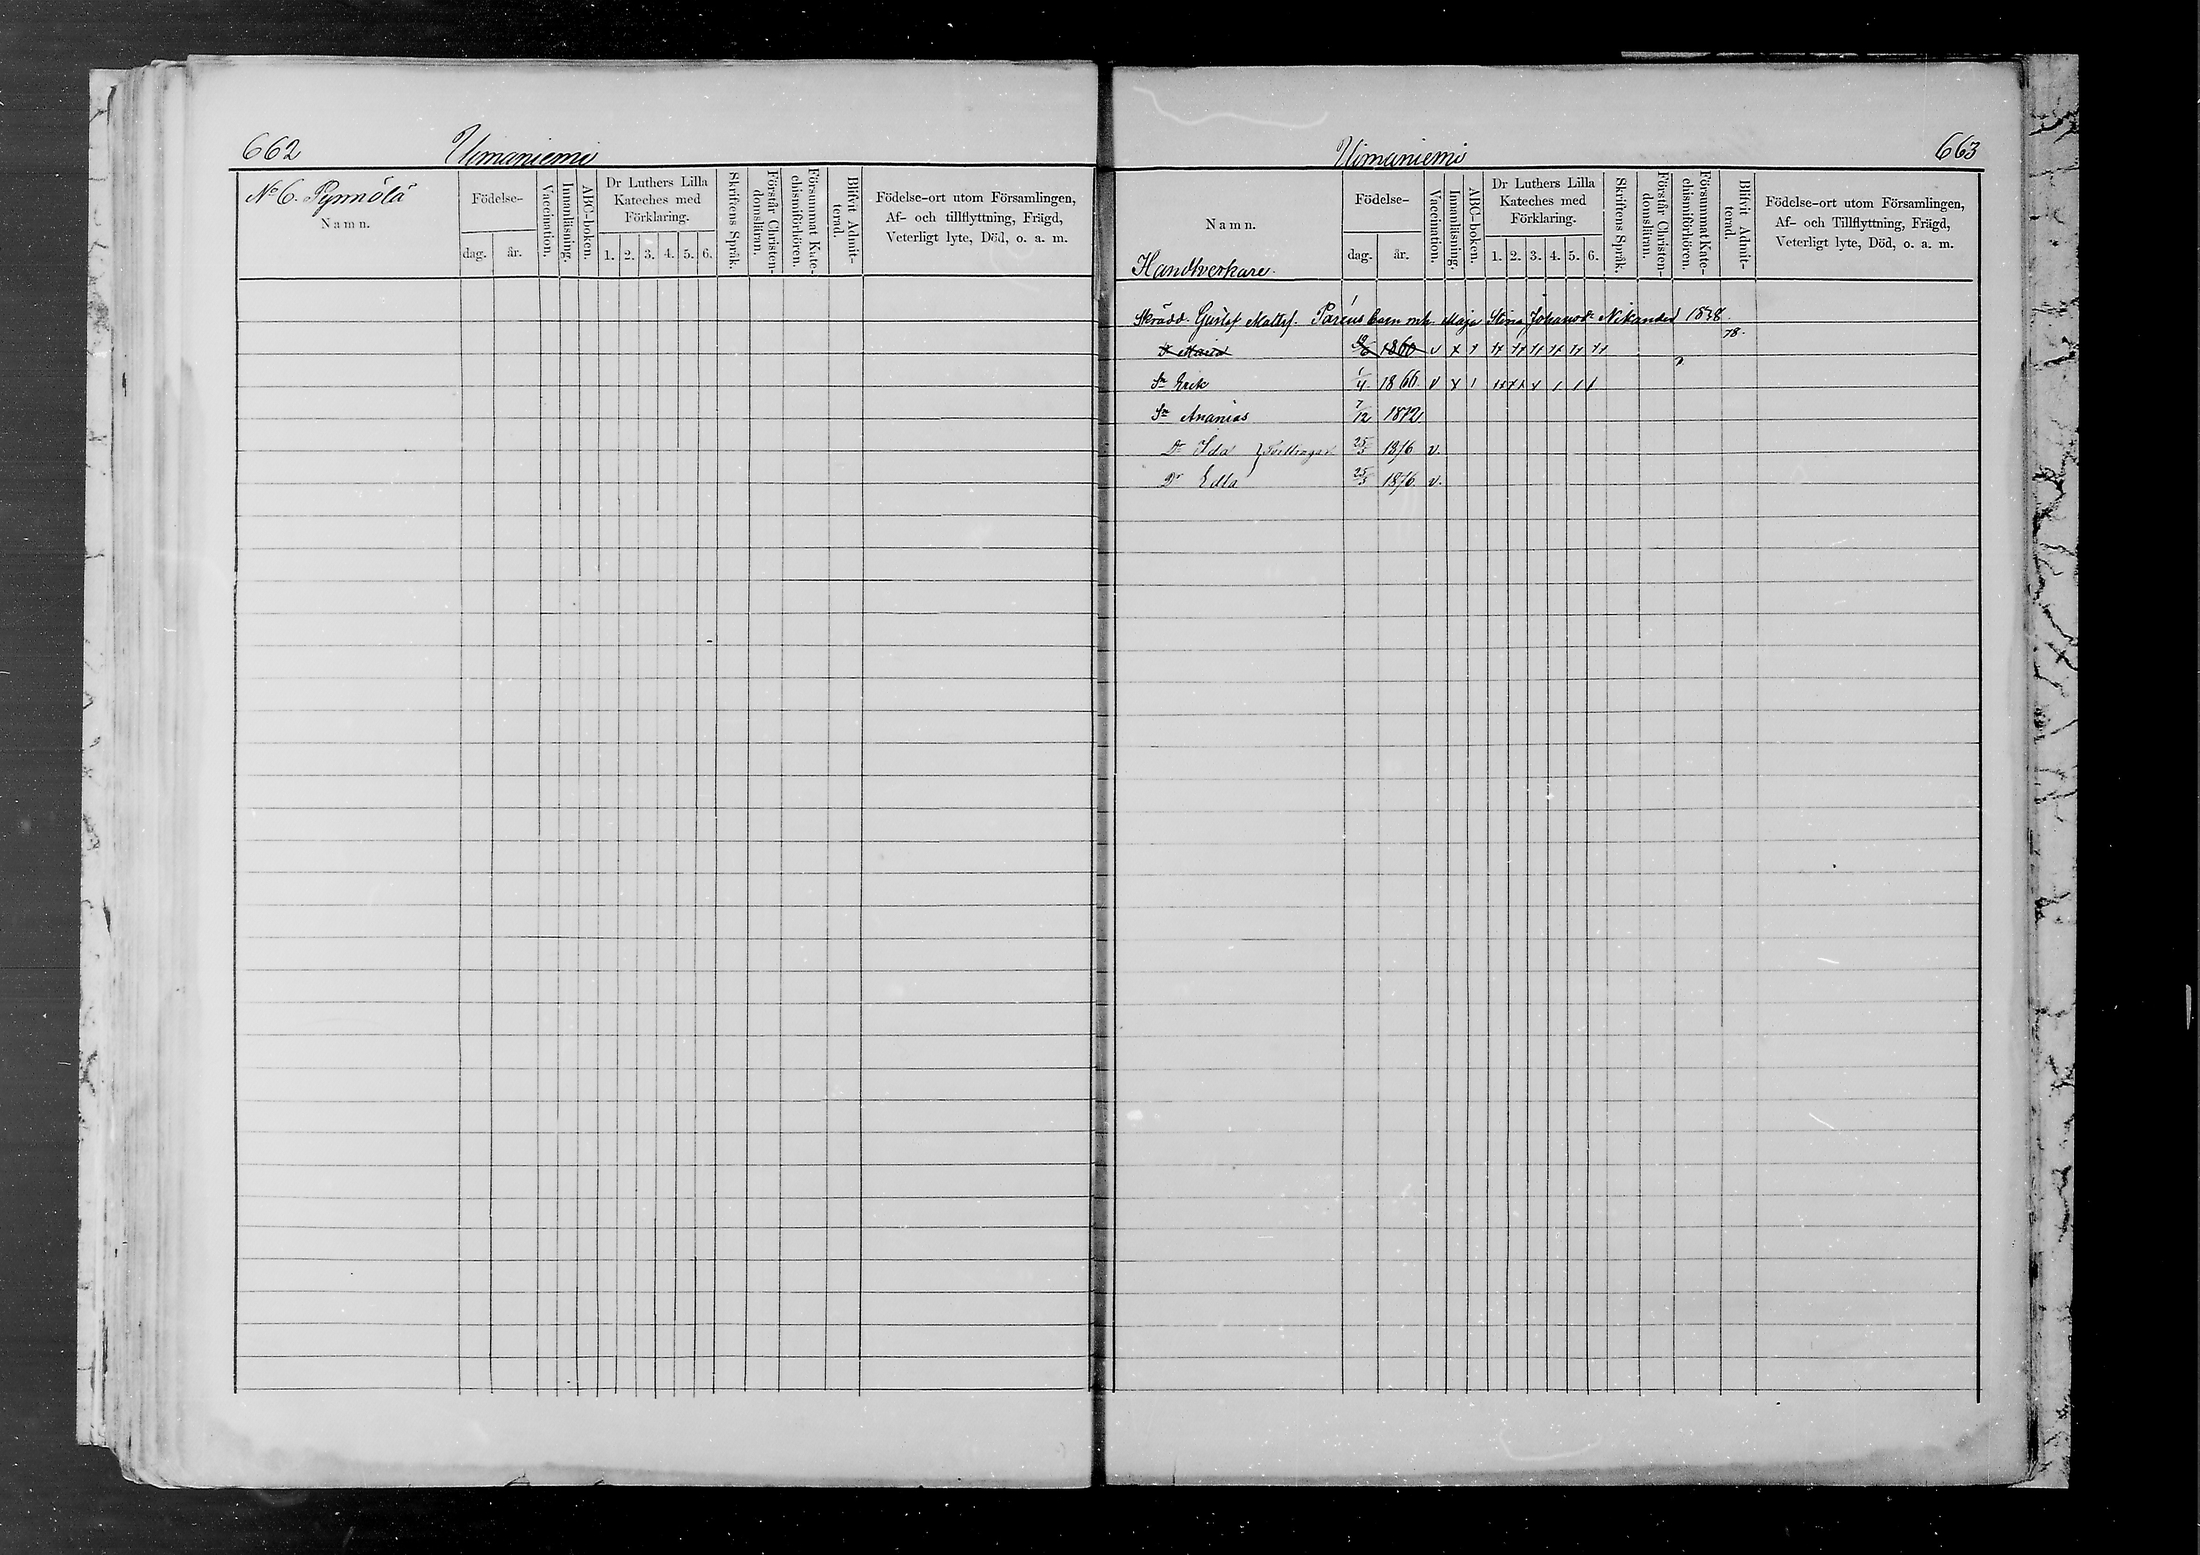 662 Uimaniemi
No 6. Pynnölä
Namn.
Födelse-
dag. år.
Vaccination.
Innanläsning.
ABC-boken.
Dr Luthers Lilla Kateches med Förklaring.
1. 2. 3. 4. 5. 6.
Skriftens Språk.
Förstår Christen-domsläran.
Försummat Kate-chismiförhören.
Blifvit Admit-terad.
Födelse-ort utom Församlingen,
Af- och tillflyttning, Frägd,
Veterligt lyte, Död, o. a. m.
Uimaniemi 663
Namn.
Handtverkare.
Födelse-
dag. år.
Vaccination.
Innanläsning.
ABC-boken.
Dr Luthers Lilla Kateches med Förklaring.
1. 2. 3. 4. 5. 6.
Skriftens Språk.
Förstår Christen-domsläran.
Försummat Kate-chismiförhören.
Blifvit Admit-terad.
Födelse-ort utom Församlingen,
Af- och Tillflyttning, Frägd,
Veterligt lyte, Död, o. a. m.
Skrädd. Gustaf Mattsf. Paréus barn m. h. Maja Stina Johansd. Nikander 1838
1860 v 78.
Sn Erik 1/4 1866 v
Sn Ananias 7/12 1872
Dr Ida } Tvillingar 25/5 1876 v.
Dr Edla 25/5 1876 v.